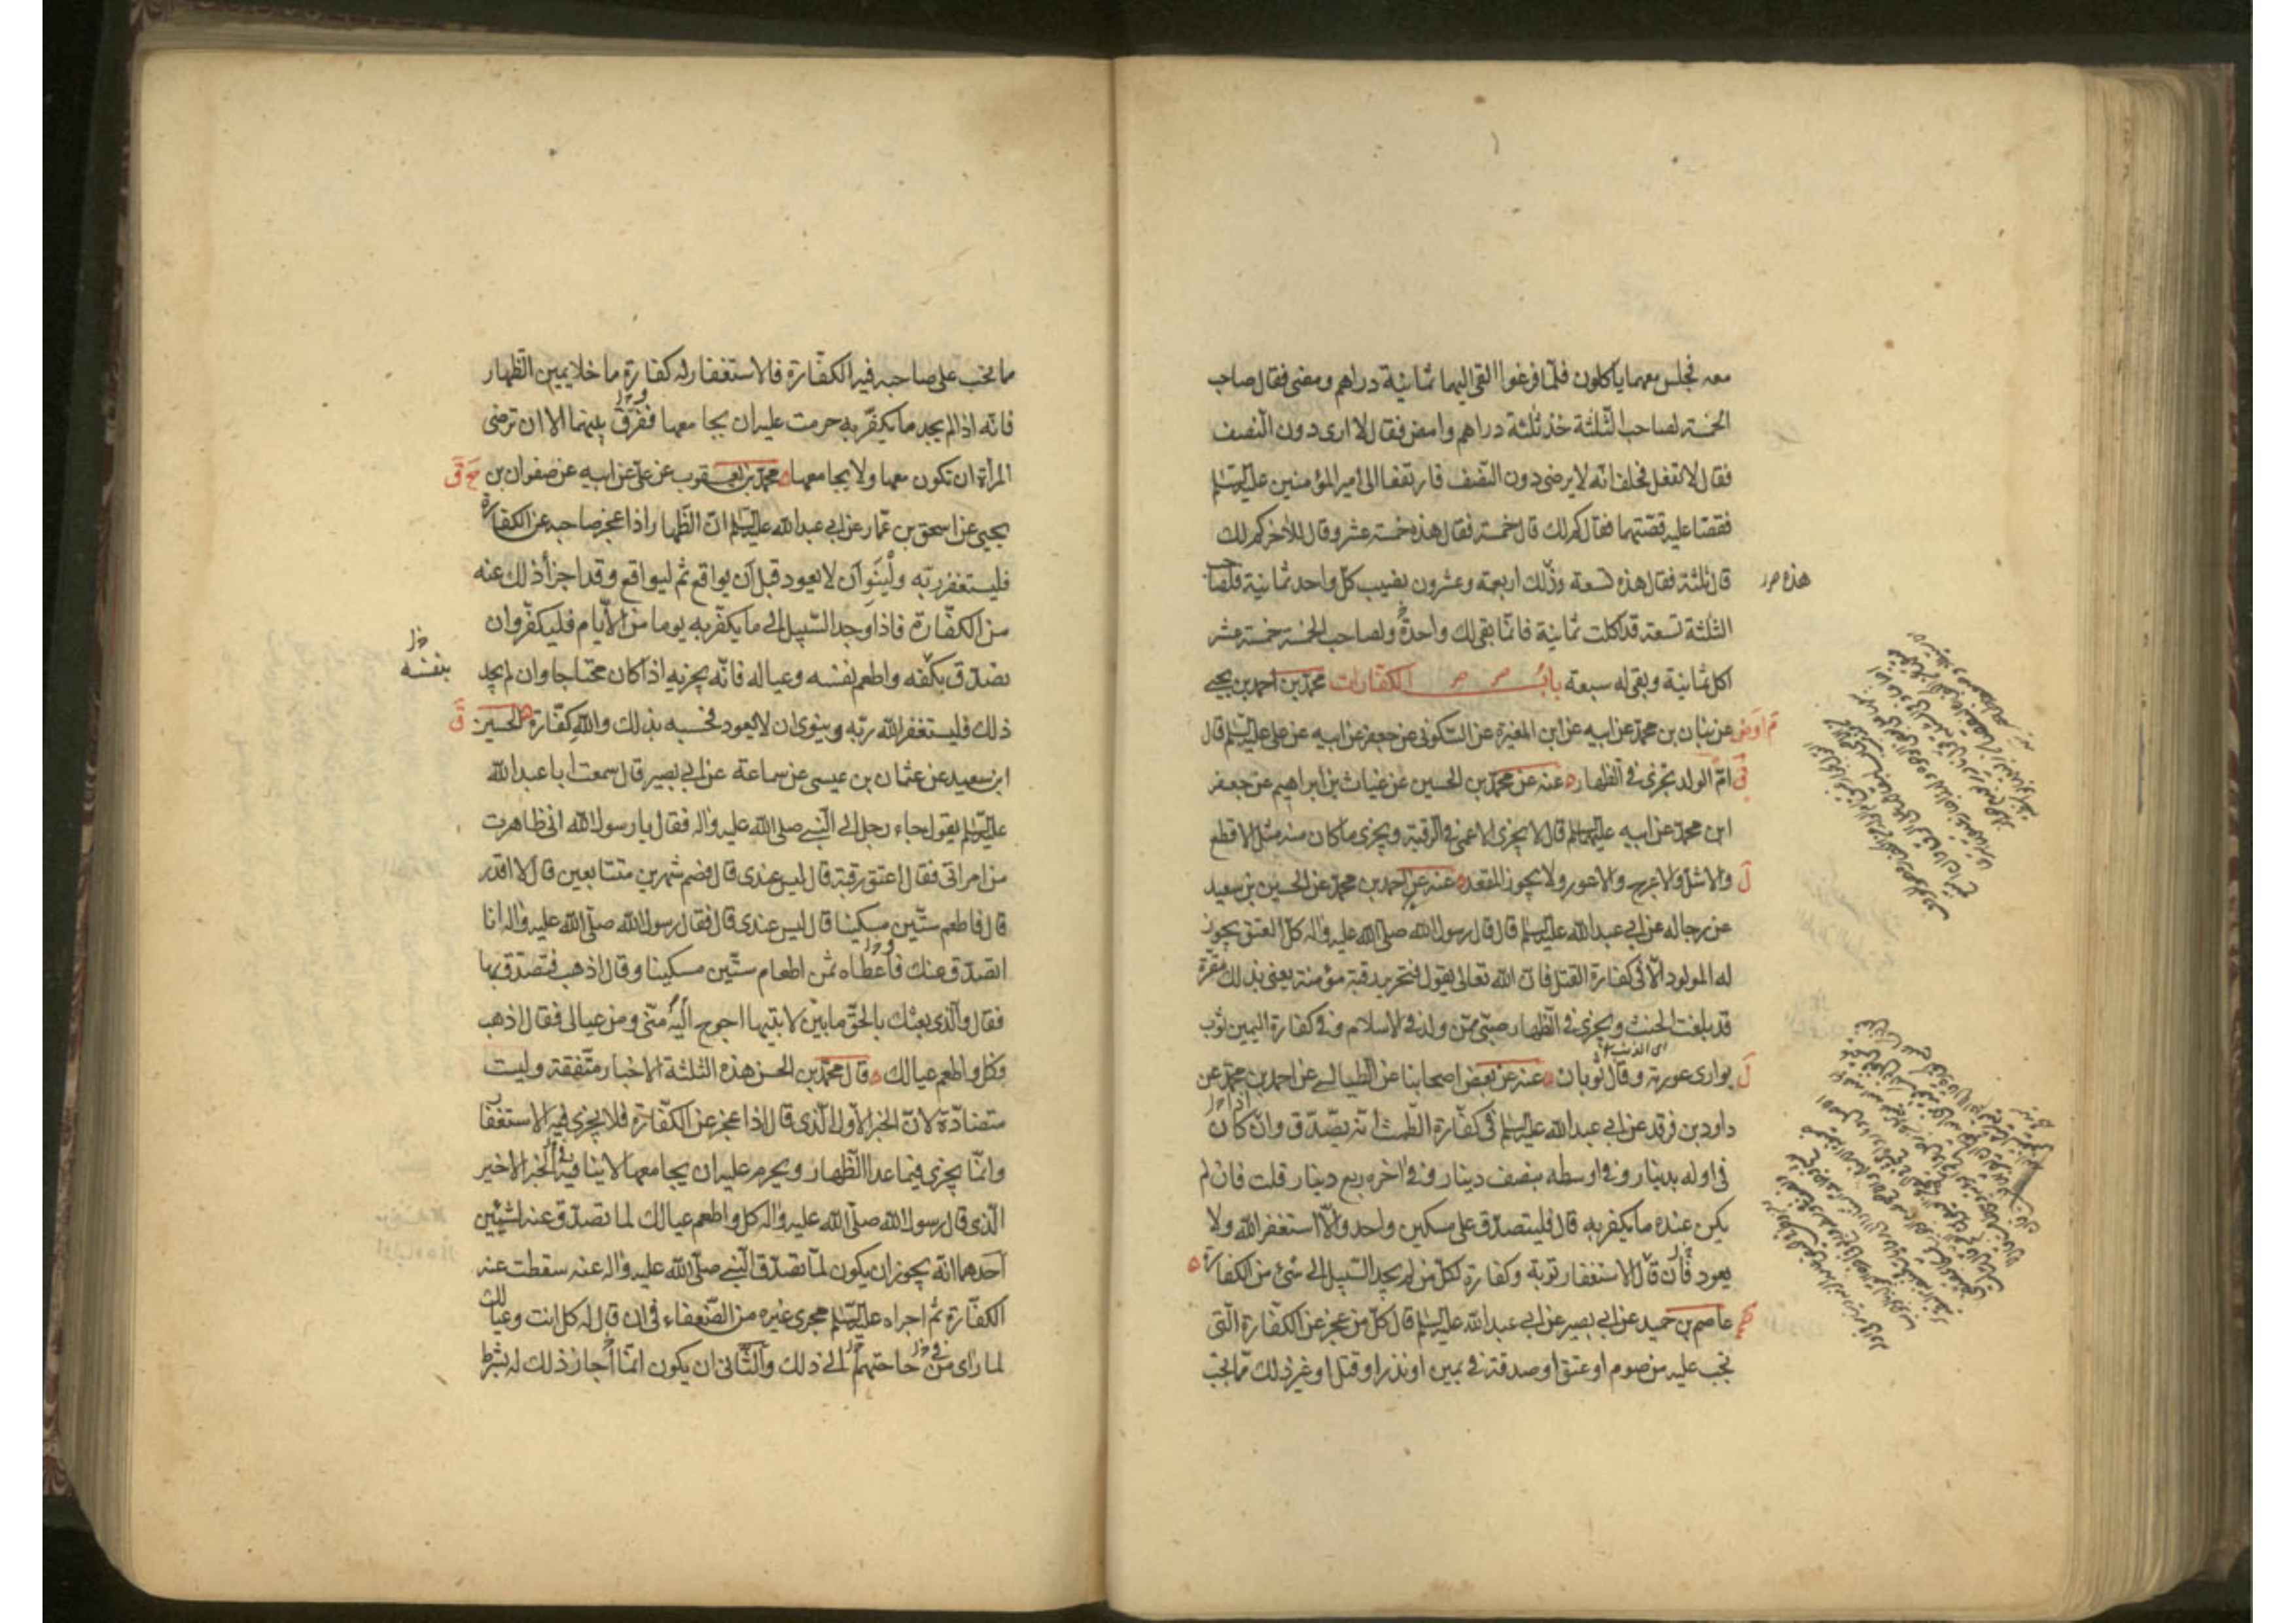 معه فجلس معهما ياكلون فلمّا فرغوا القى اليهما ثمانية دراهم ومضى فقال صاحب
الخمسة لصاحب الثلثة خذ ثلثة دراهم وامض فقال لا ارى دون النصف
فقال لا تفعل فحلف انه لا يرضى دون النصف فارتفعا الى امير المؤمنين عليه السلم
فقصا عليه قصّتهما فقال كم لك قال خمسة فقال هذه خمسة عشر وقال للاخر كم لك
قال ثلثة فقال هذه تسعة وذلك اربعة وعشرون يصيب كل واحد ثمانية فلصاحب
هذه
الثلثة تسعة قد اكلت ثمانية فانما بقى لك واحدة ولصاحب الخمسة خمسة عشر
اكل ثمانية وبقى له سبعة باب الكفارات محمد بن احمد بن يحيى
عن بنان بن محمد عن ابيه عن ابن المغيرة عن السكونى عن جعفر عن ابيه عن على عليه السلم قال
امّ الولد تجزى فى الظهار عنه عن محمد بن الحسين عن غياث بن ابراهيم عن جعفر
ابن محمد عن ابيه عليهما السلم قال لا يجزى الاعمى فى الرقبة ويجزى ما كان منه مثل الاقطع
والاشل والاعرج والاعور ولا يجوز المقعد عنه عن احمد بن محمد عن الحسين بن سعيد
عن رجاله عن ابى عبد الله عليه السلم قال قال رسول الله صلى الله عليه واله كل العتق يجوز
له المولود الّا فى كفارة القتل فان الله تعالى يقول فتحرير رقبة مؤمنة يعنى بذلك مقرّة
قد بلغت الحنث ويجزى فى الظهار صبىّ ممّن ولد فى الاسلام وفى كفارة اليمين ثوب
يوارى عورته وقال ثوبان عنه عن بعض اصحابنا عن الطيالسى عن احمد بن محمد عن
داود بن فرقد عن ابى عبد الله عليه السلم فى كفّارة الطمث انه يتصدّق وان كان
فى اوله بدينار وفى اوسطه بنصف دينار وفى اخره ربع دينار قلت فان لم
يكن عنده ما يكفر به قال فليتصدّق على مسكين واحد والّا استغفر الله ولا
يعود فان قال الاستغفار توبة وكفارة لكل من لم يجد السّبيل الى شئ من الكفارة
عاصم بن حميد عن ابى بصير عن ابى عبد الله عليه السلم قال كل من عجز عن الكفّارة الّتى
تجب عليه من صوم او عتق او صدقة فى يمين او نذر او قتل او غير ذلك ممّا يجب
مما يجب على صاحبه فيه الكفّارة فالاستغفار له كفارة ما خلا يمين الظهار
فانّه اذا لم يجد ما يكفّر به حرمت عليه ان يجامعها ففرّق بينهما الا ان ترضى
المرأة ان تكون معها ولا يجامعها محمد بن يعقوب عن على عن ابيه عن صفوان بن
يحيى عن اسحق بن عمّار عن ابى عبد الله عليه السلم ان الظهار اذا عجز صاحبه عن الكفارة
فليستغفر ربّه ولينو ان لا يعود قبل ان يواقع ثم ليواقع وقد اجزأ ذلك عنه
من الكفّارة فاذا وجد السّبيل الى ما يكفّر به يوما من الايّام فليكفّر وان
تصدّق بكفّه واطعم نفسه وعياله فانّه يجزيه اذا كان محتاجا وان لم يجد
بنفسه
ذلك فليستغفر الله ربّه وينوى ان لا يعود فحسبه بذلك والله كفّارة الحسين
ابن سعيد عن عثمان بن عيسى عن سماعة عن ابى بصير قال سمعت ابا عبد الله
عليه السلم يقول جاء رجل الى النّبى صلى الله عليه واله فقال يا رسول الله انى ظاهرت
من امراتى فقال اعتق رقبة قال ليس عندى قال فصم شهرين متتابعين قال لا اقدر
قال فاطعم ستّين مسكينا قال ليس عندى قال فقال رسول الله صلّى الله عليه واله انا
اتصدّق عنك فاعطاه ثمن اطعام ستّين مسكينا وقال اذهب فتصدّق بها
فقال والّذى بعثك بالحقّ ما بين لابتيها احوج اليه منّى ومن عيالى فقال اذهب
وكل واطعم عيالك قال محمّد بن الحسن هذه الثلثة الاخبار متّفقة وليست
متضادّة لانّ الخبر الاول الّذى قال اذا عجز عن الكفّارة فلا يجزى فيه الاستغفار
وانّما يجزى فيما عدا الظهار ويحرم عليه ان يجامعها لا ينافيه الخبر الاخير
الّذى قال رسول الله صلّى الله عليه واله كل واطعم عيالك لما تصدّق عنه لشيئين
احدهما انّه يجوز ان يكون لمّا تصدّق النّبى صلّى الله عليه واله عنه سقطت عنه
الكفّارة ثم اجراه عليه السّلم مجرى غيره من الضّعفاء فى ان قال له كل انت وعيالك
لما راى من حاجتهم الى ذلك والثّانى ان يكون انّما اجاز ذلك له بشرط